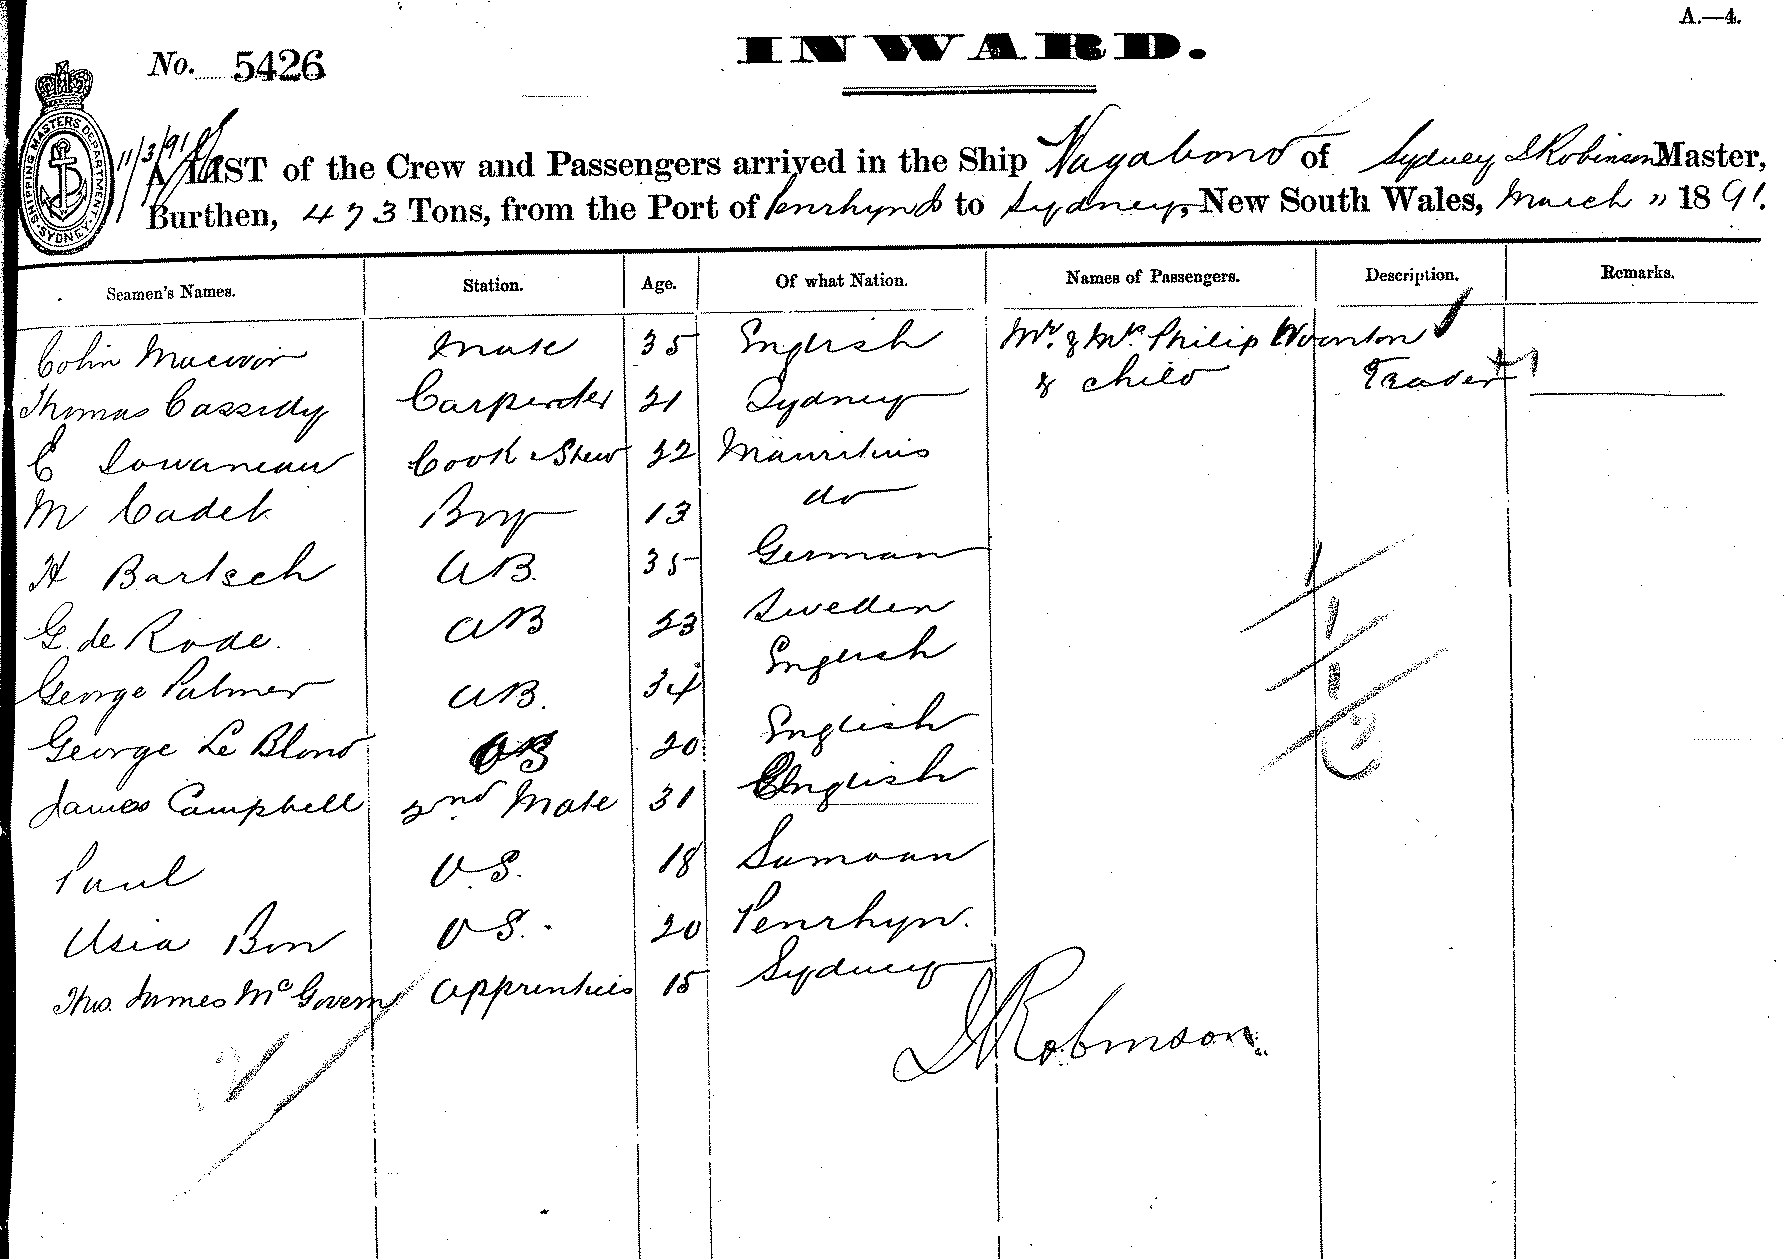 A.—4.
INWARD.
No. 5426
SHIPPING MASTERS DEPARTMENT. SYDNEY
11/3/91
A LIST of the Crew and Passengers arrived in the Ship Vagabond of Sydney Robinson Master,
Burthen, 473 Tons, from the Port of Penrhyn to Sydney, New South Wales, March " 1891.
Seamen's Names. Station. Age. Of what Nation. Names of Passengers. Description. Remarks.
Colin Mate 35 English Mr. & Mrs Philip
Thomas Cassidy Carpenter 21 Sydney & child Trader
C Cook & Stew 22 Mauritius
M Cadet Boy 13 do
H Bartsch AB. 35 German
G. de Rode. AB 23 Sweden
George Palmer AB. 34 English
George Le Blond OS 20 English
James Campbell 2nd Mate 31 English
Paul O.S. 18 Samoan
Usia Ben O S. 20 Penrhyn.
Thos. James McGovern Apprentice 15 Sydney
Robinson